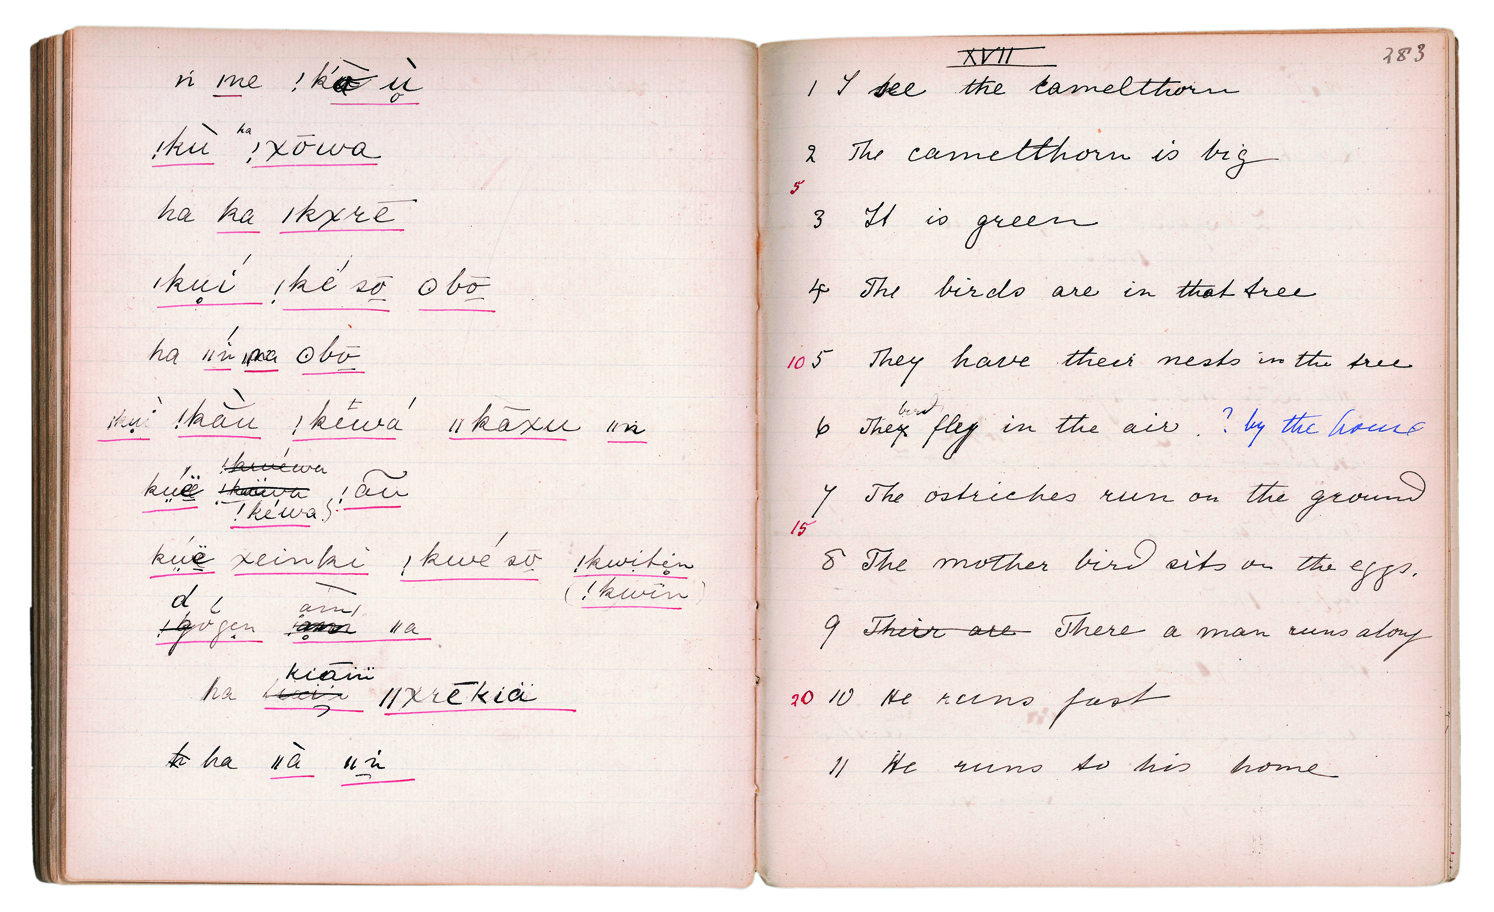 ṅ me !k ù̥
!kù ha !xōwa
ha ka ıkxrē
ıkụí !ké sō ʘbō
ha ııṅ́ ııṇa ʘbō
ıkụì !kàu !kēwá ııkāxu ııṅ
kụ́ë !kéwa !ãu
kụ́ë xeinki !kwé sō !kwitẹn
(!kwīn)
ıı̀a
ha kiāïï ııxrēkiä
ha ııà ııṅ
XVII 283
1 I see the camelthorn
2 The camelthorn is big
5
3 It is green
4 The birds are in that tree
10 5 They have their nests in the tree
bird
6 They fly in the air. ? by the house
7 The ostriches run on the ground
15
8 The mother bird sits on the eggs.
9 Their are There a man runs along
20 10 He runs fast
11 He runs to his home